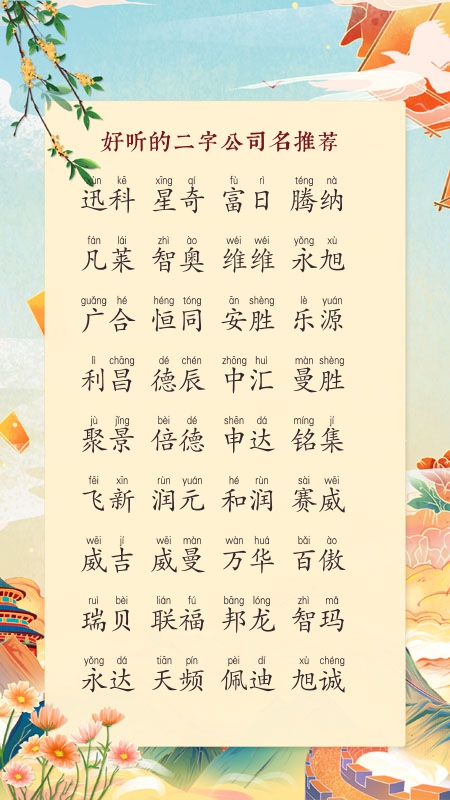 好听的二字公司名推荐
xùn kē xīng qí fù rì téng nà
迅科 星奇 富日 腾纳
fán lái zhì ào wéi wéi yǒng xù
凡莱 智奥 维维 永旭
guǎng hé héng tóng ān shèng lè yuán
广合 恒同 安胜 乐源
lì chāng dé chén zhōng huì màn shèng
利昌 德辰 中汇 曼胜
jù jǐng bèi dé shēn dá míng jí
聚景 倍德 申达 铭集
fēi xīn rùn yuán hé rùn sài wēi
飞新 润元 和润 赛威
wēi jí wēi màn wàn huá bǎi ào
威吉 威曼 万华 百傲
ruì bèi lián fú bāng lóng zhì mǎ
瑞贝 联福 邦龙 智玛
yǒng dá tiān pín pèi dí xù chéng
永达 天频 佩迪 旭诚